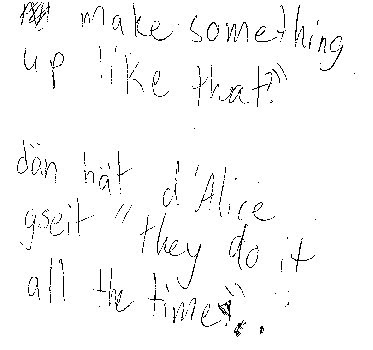 make something
up like that?"
dän hät d'Alice
gseit "they do it
all the time"...